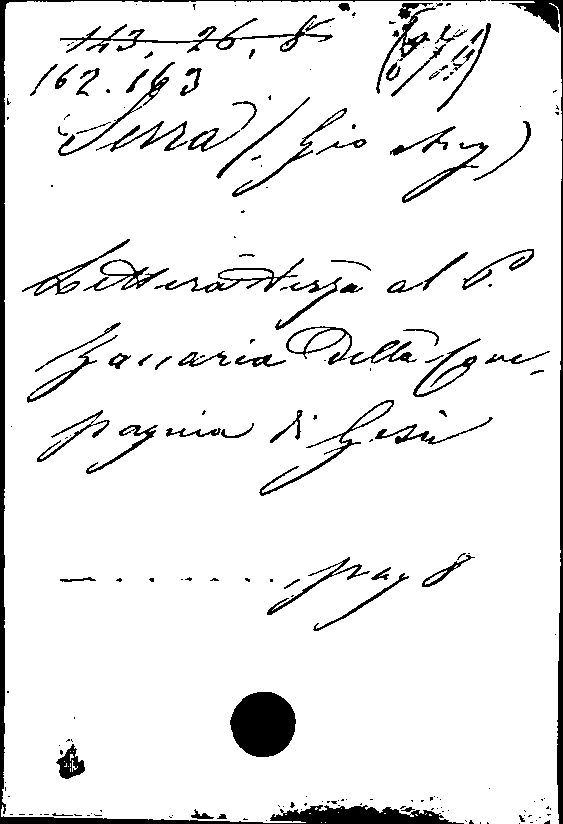 143. 26. 8
162.163
Serra (Gio Ang)
Lettera terza al P.
Zaccaria della Com-
pagnia di Gesù
— . . . . . . . pag 8